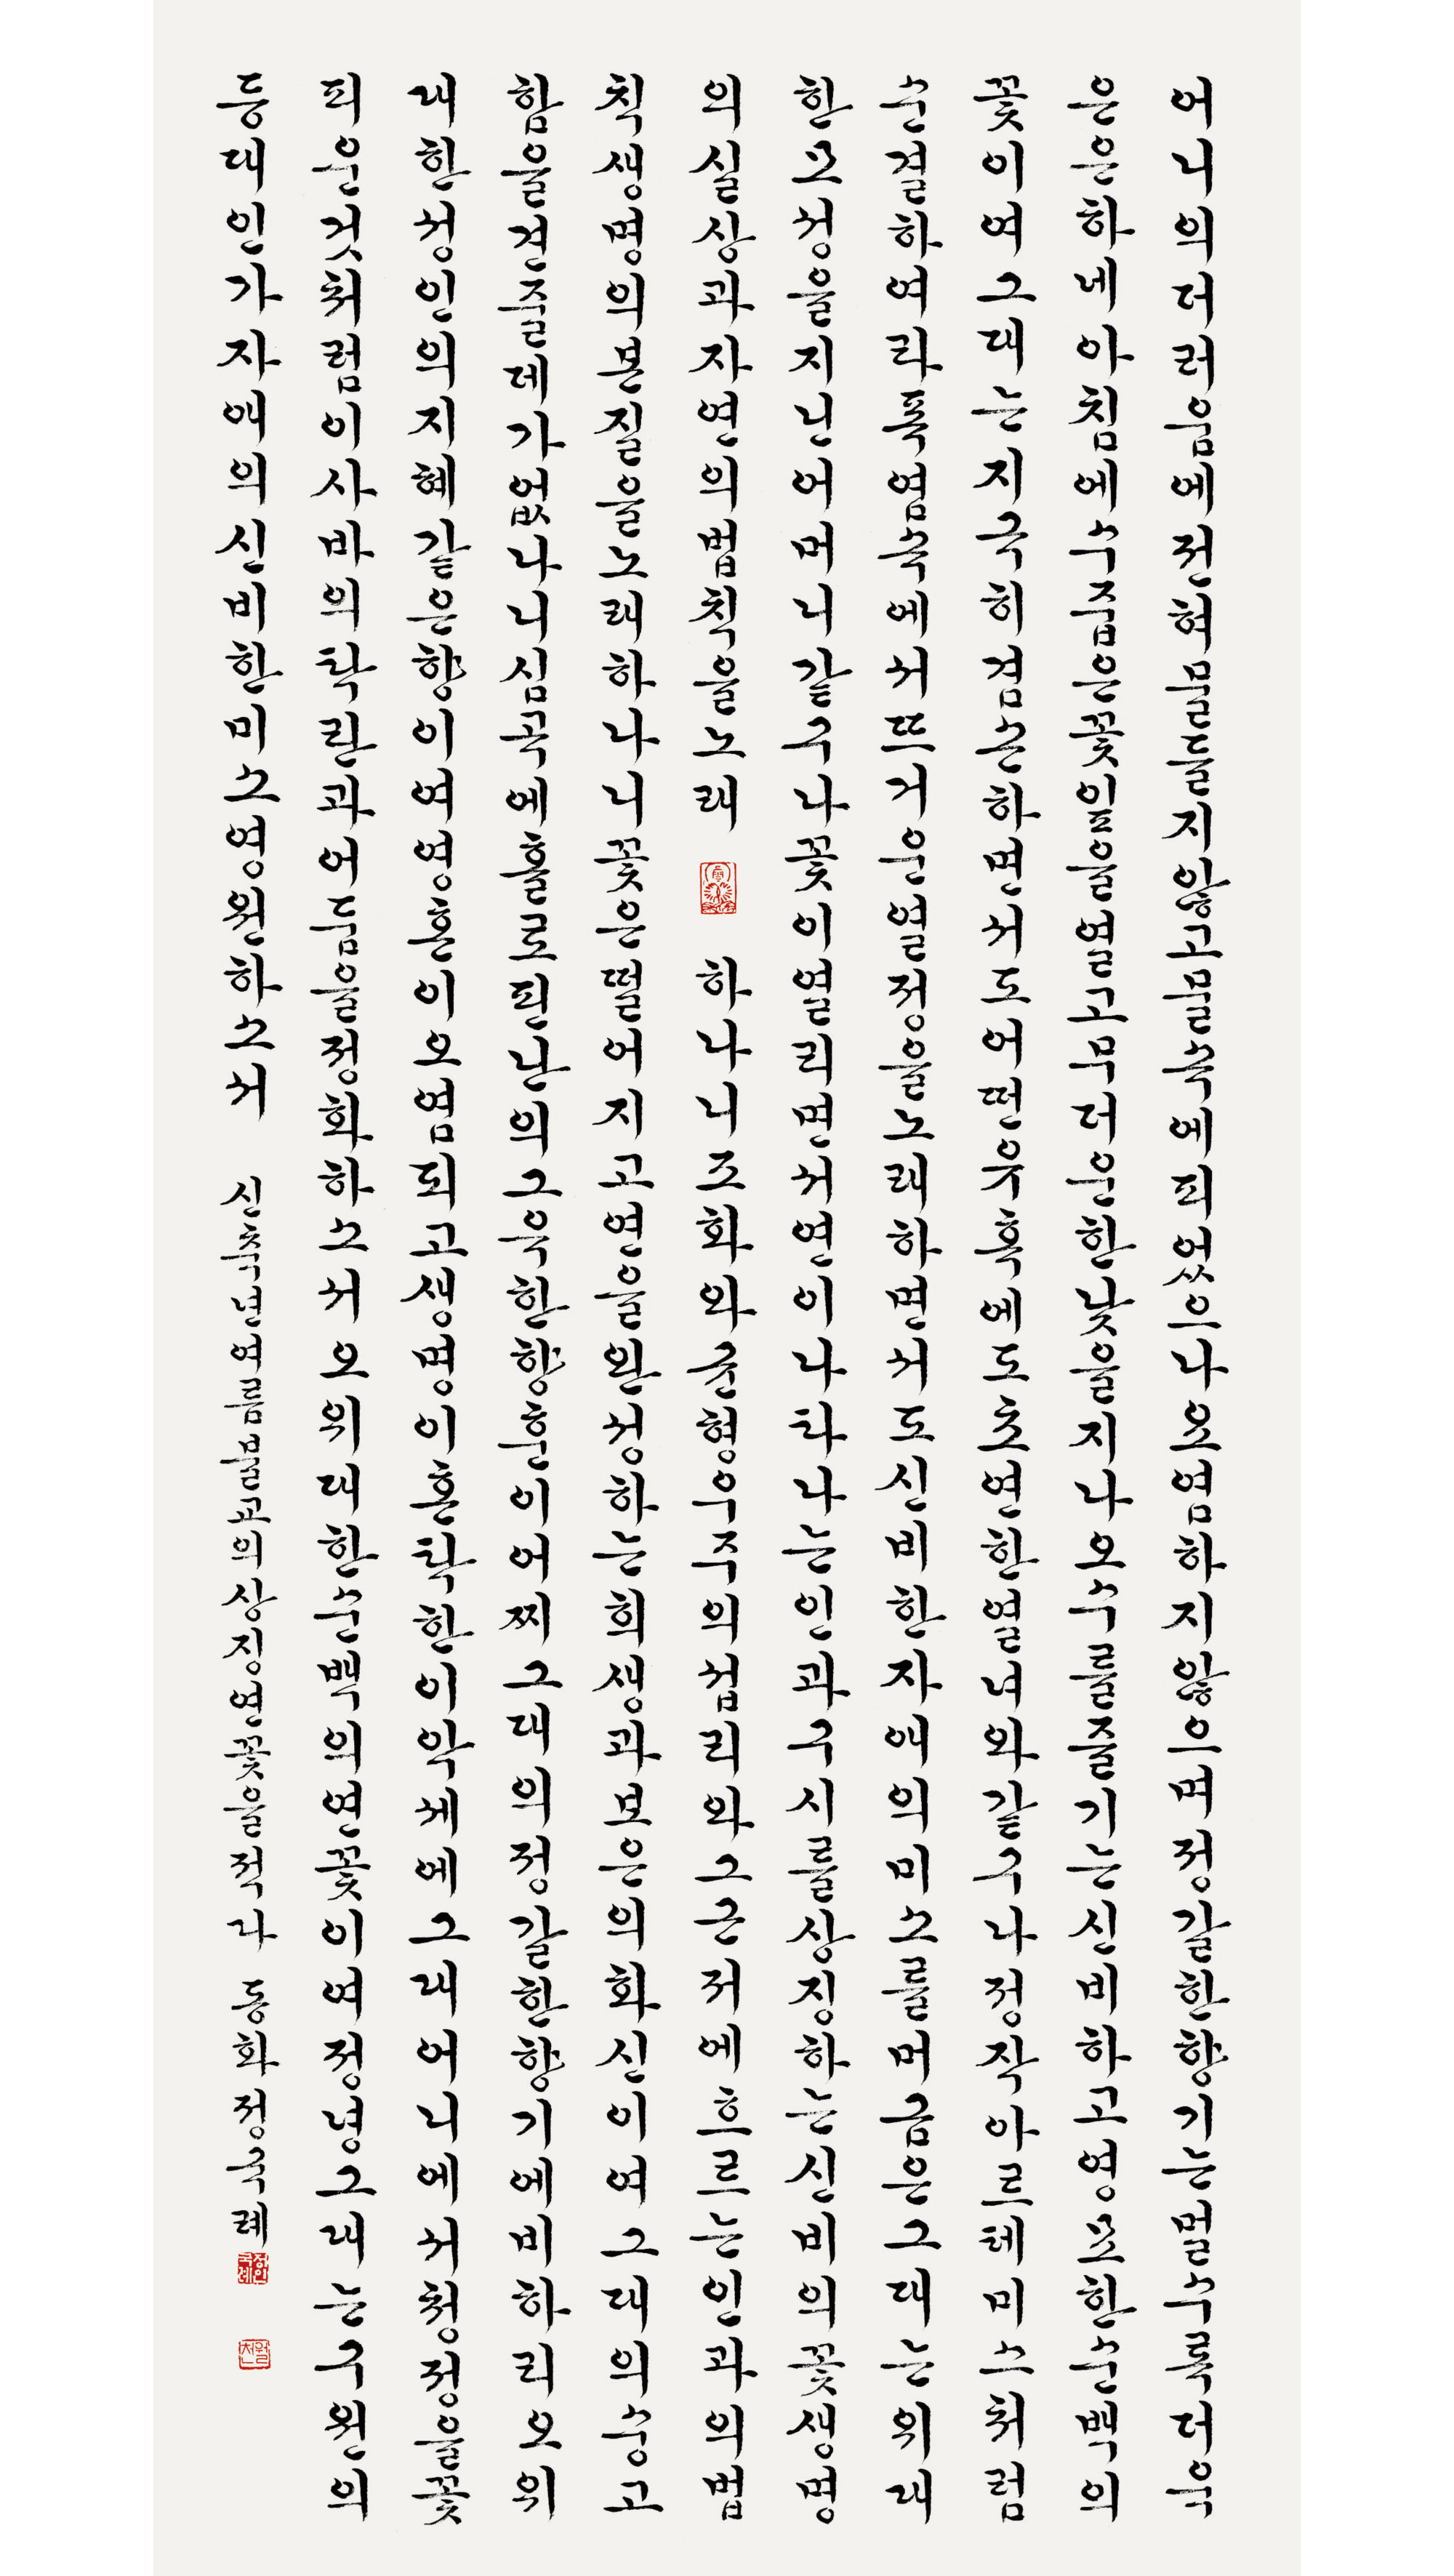 어니의더러움에전혀물들지않고물속에피었으나요염하지않으며정갈한향기는멀수록더욱
은은하네아침에수줍은꽃잎을열고무더운한낮을지나오수를즐기는신비하고영묘한순백의
꽃이여그대는지극히겸손하면서도어떤유혹에도초연한열녀와같구나정작아르테미스처럼
순결하여라폭염속에서뜨거운열정을노래하면서도신비한자애의미소를머금은그대는위대
한모성을지닌어머니같구나꽃이열리면서연이나타나는인과구시를상징하는신비의꽃생명
의실상과자연의법칙을노래 하나니조화와균형우주의섭리와그근저에흐르는인과의법
칙생명의본질을노래하나니꽃은떨어지고연을완성하는희생과보은의화신이여그대의숭고
함을견줄데가없나니심곡에홀로핀난의그윽한향훈이어찌그대의정갈한향기에비하리오위
대한성인의지혜같은향이여영혼이오염되고생명이혼탁한이악세에그대어니에서청정을꽃
피운것처럼이사바의탁란과어둠을정화하소서오위대한순백의연꽃이여정녕그대는구원의
등대인가자애의신비한미소영원하소서 신축년여름불교의상징연꽃을적다 동화정국례